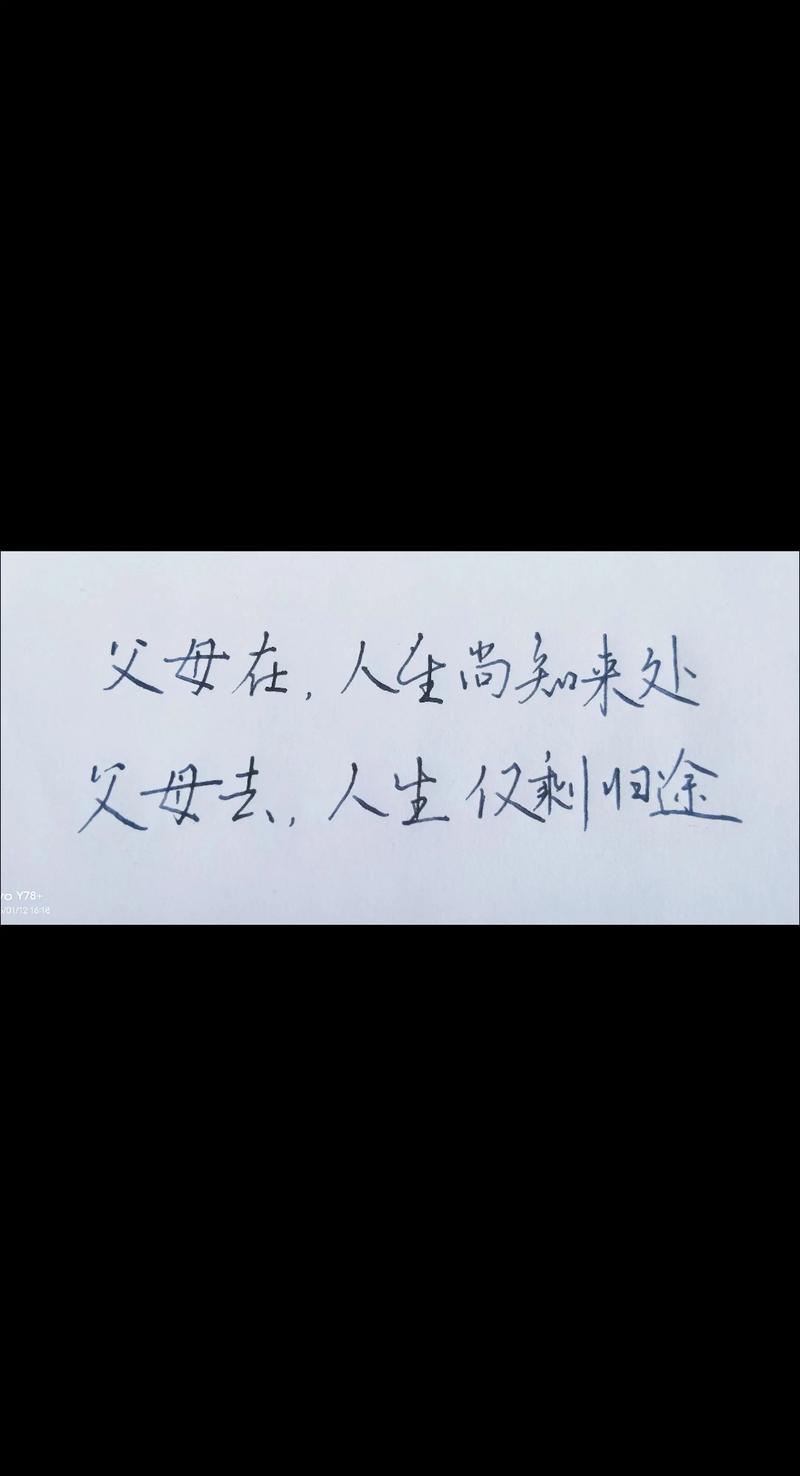 父母在，人生尚知来处
父母去，人生仅剩归途
vo Y78+
/01/12 16:18